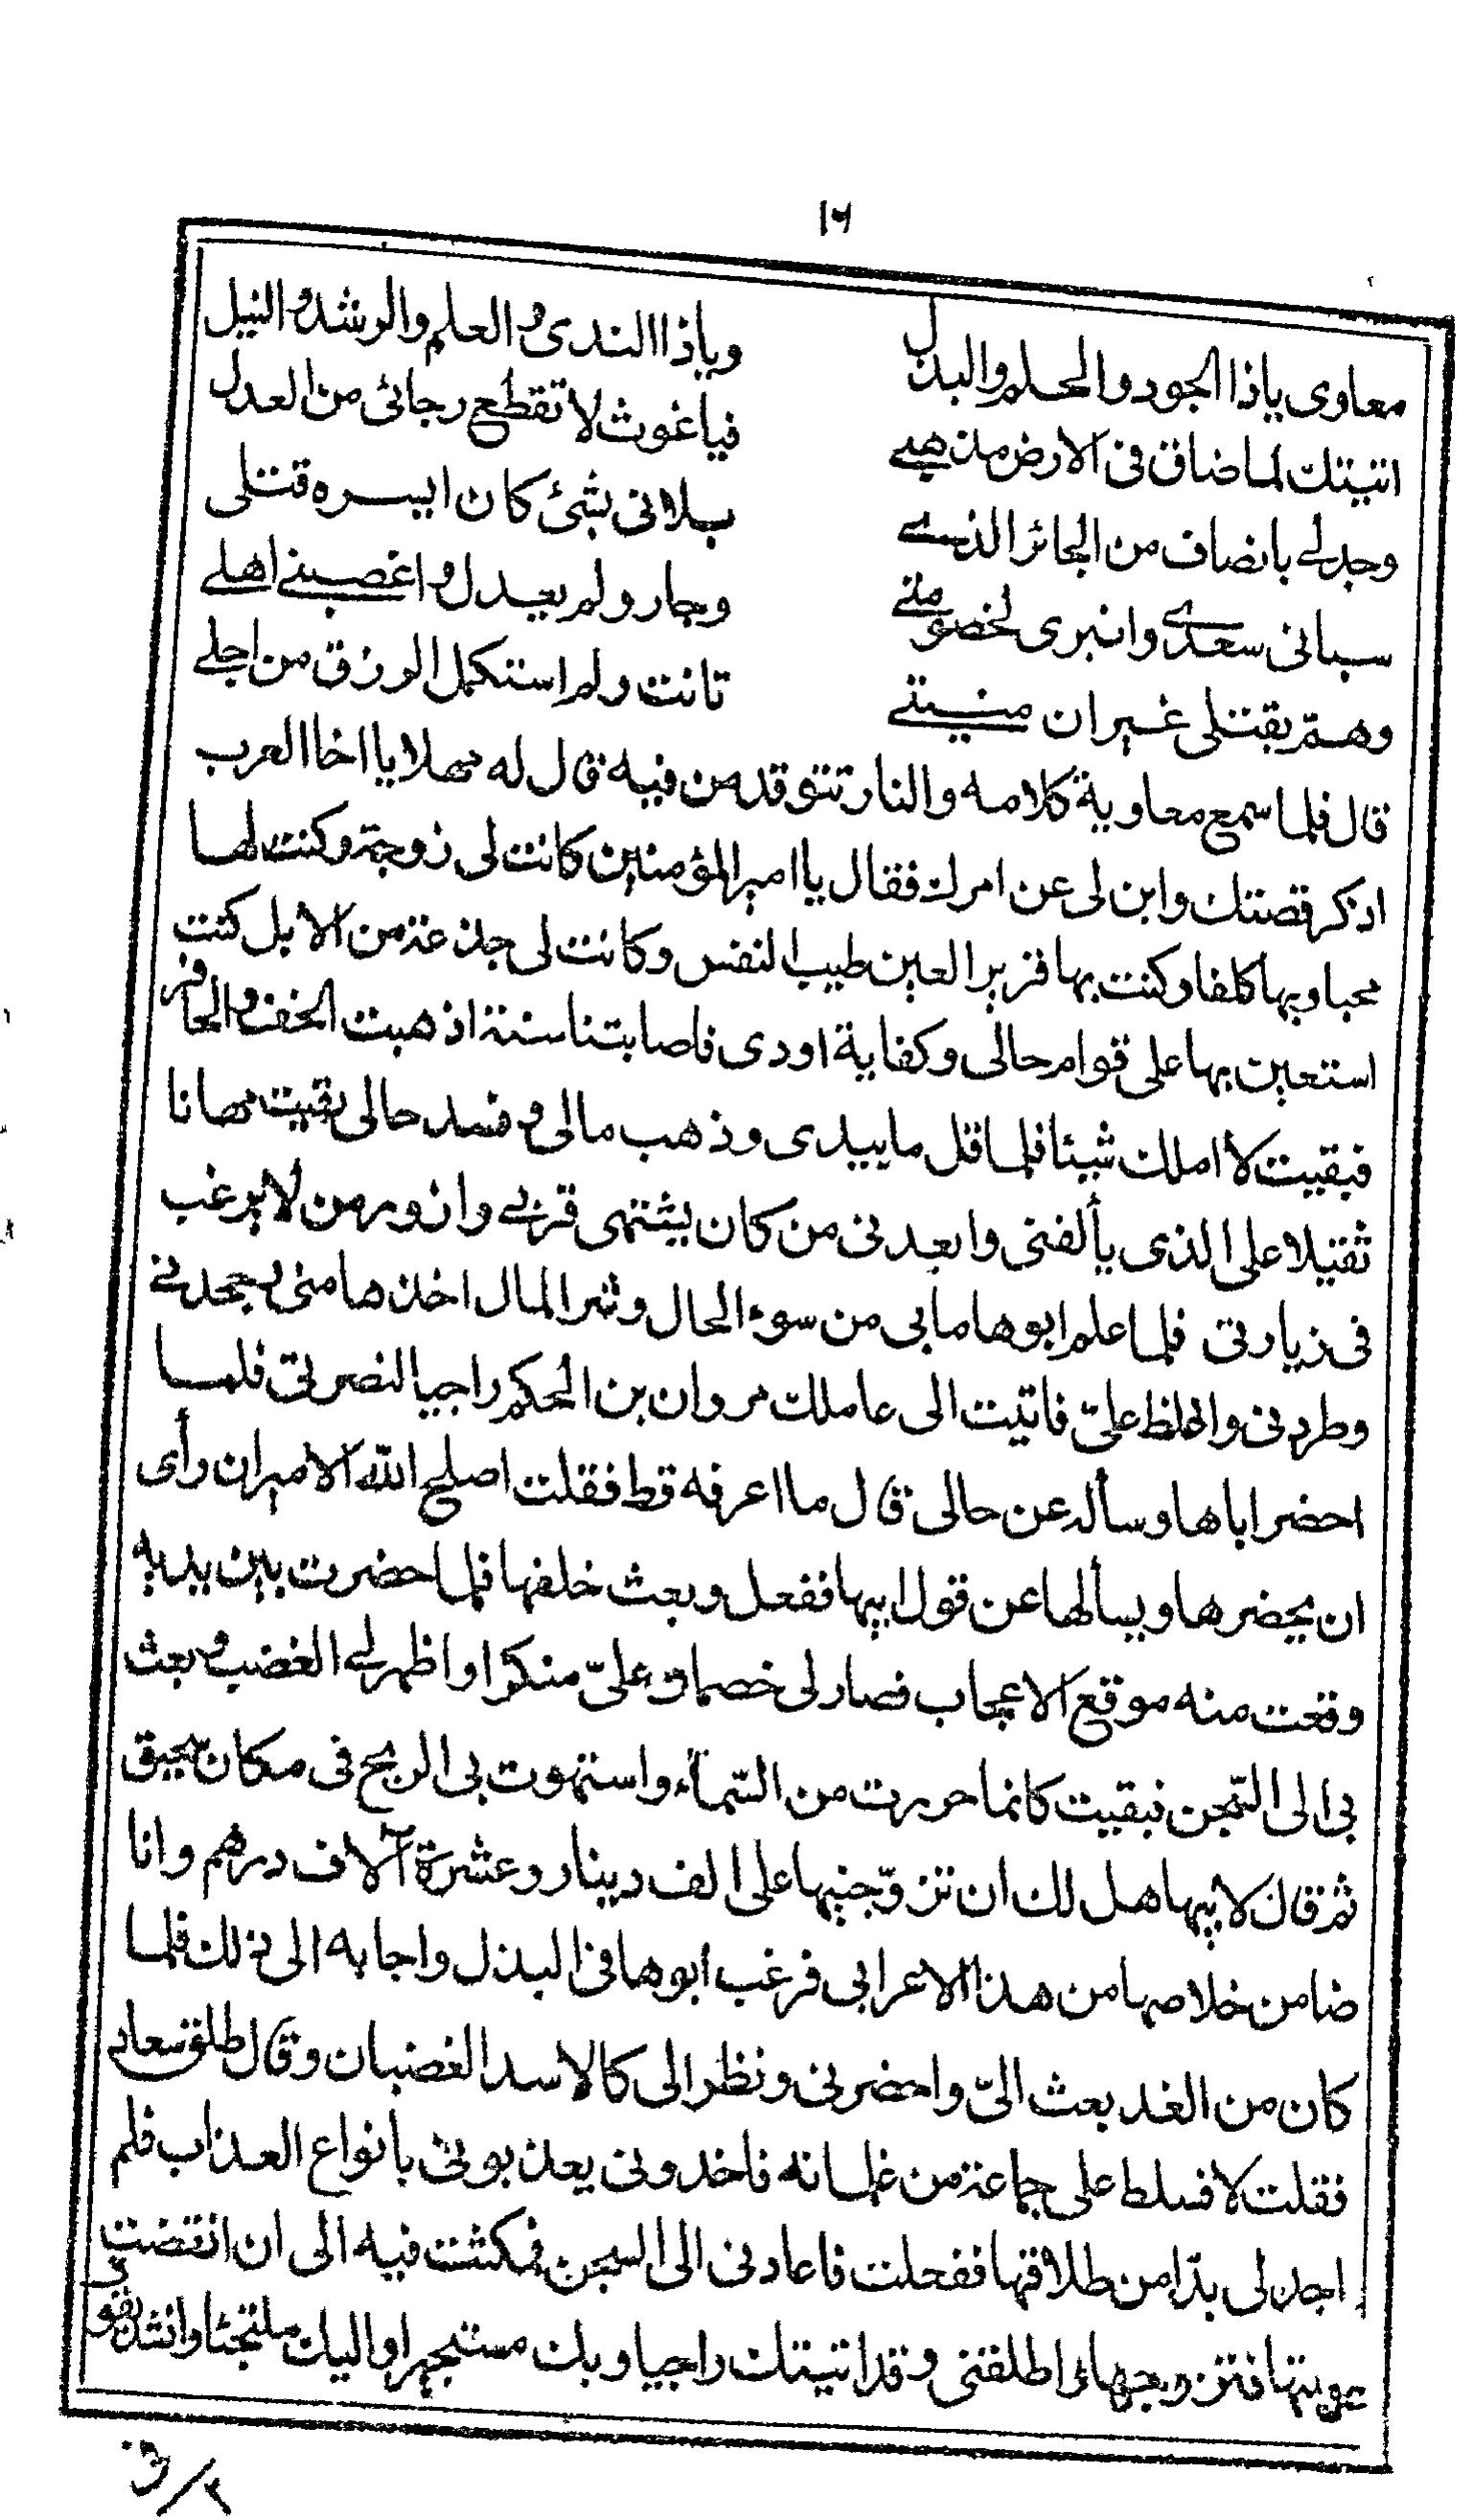 ١٦
معاوى ياذا الجود والحلم والبذل وياذا الندى والعلم والرشد والنيل
اتيتك لما ضاق فى الارض مذهبے فياغوث لا تقطع رجائى من العدل
وجدلے بانصاف من الجائر الذے بلانى بشئ كان ايسره قتلى
سبانى سعدے وانبرى لخصومتے وجار ولم يعدل واغصبنے اهلے
وهم بقتلى غير ان منيتے تانت ولم استكمل الرزق من اجلے
قال فلما سمع معاوية كلامه والنار تتوقد من فيه قال له مهلا يا اخا العرب
اذكر قصتك وابن لى عن امرك فقال يا امير المؤمنين كانت لى زوجة وكنت لها
محبا وبها كلفا وكنت بها قرير العين طيب النفس وكانت لى جذعة من الابل كنت
استعين بها على قوام حالى وكفاية اودى فاصابتنا سنة اذهبت الخف والحافر
فبقيت لا املك شيئا فلما قل ما بيدى وذهب مالى وفسد حالى بقيت مهانا
ثقيلا على الذى يألفنى وابعدنى من كان يشتهى قربے وازور من لا يرغب
فى زيارتى فلما علم ابوها مابى من سوء الحال وشر المال اخذها منى وجحدنے
وطردنى واغلظ علىّ فاتيت الى عاملك مروان بن الحكم راجيا لنصرتى فلما
احضر اباها وسأله عن حالى قال ما اعرفه قط فقلت اصلح اللّه الامير ان رأى
ان يحضرها ويسألها عن قول ابيها ففعل وبعث خلفها فلما حضرت بين يديه
وقعت منه موقع الاعجاب فصار لى خصما وعلىّ منكرا واظهر لے الغضب وبعث
بى الى السّجن فبقيت كانما خررت من السّمآء واستهوت بى الريح فى مكان سحيق
ثم قال لابيها هل لك ان تزوّجنيها على الف دينار وعشرة آلاف درهم وانا
ضامن خلاصها من هذا الاعرابى فرغب ابوها فى البذل واجابه الى ذلك فلما
كان من الغد بعث الىّ واحضرنى ونظر الى كالاسد الغضبان وقال طلق سعاد
فقلت لا فسلط على جماعة من غلمانه فاخذونى يعذبونى بانواع العذاب فلم
اجد لى بدّا من طلاقها ففعلت فاعادنى الى السجن فمكثت فيه الى ان انقضت
عدتها فتزوجها واطلقنى وقد اتيتك راجيا وبك مستجيرا واليك ملتجئا وانشد يقول